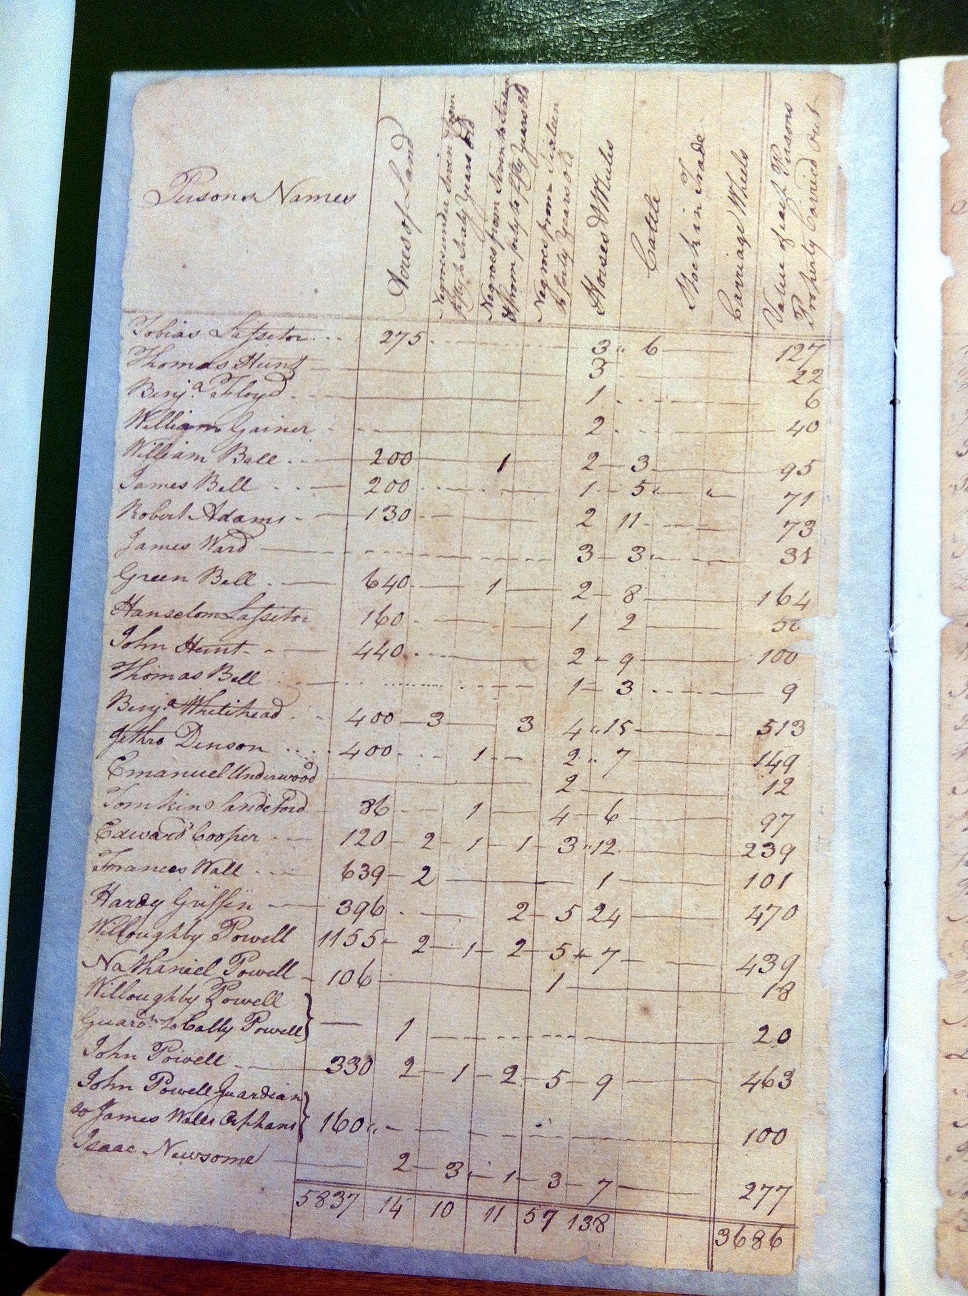 Persons Names
Acres of Land
Negroes under Seven & from
fifty to Sixty Years old
Negroes from Seven to Sixteen
& from forty to fifty Years old
Negroes from Sixteen
to forty Years old
Horses & Mules
Cattle
Stock in Trade
Carriage Wheels
Value of each Persons
Property Carried out
Tobias Lassetor 275 3 6 127
Thomas Hunt 3 22
Benja Floyd 1 6
William Gainer 2 40
William Bell 200 1 2 3 95
James Bell 200 1 5 71
Robert Adams 130 2 11 73
James Ward 3 3
Green Bell 640 1 2 8 164
Hanselom Lassetor 160 1 2
John Hunt 440 2 9 100
Thomas Bell 1 3 9
Benja Whitehead 400 3 3 4 15 513
Jethro Denson 400 1 2 7 149
Emanuel Underwood 2 12
Tomkins 86 1 4 6 97
Edward Cooper 120 2 1 1 3 12 239
Frances Wall 639 2 1 101
Hardy Griffin 396 2 5 24 470
Willoughby Powell 1155 2 1 2 5 7 439
Nathaniel Powell 106 1 18
Willoughby Powell
Guardn to Cally Powell 1 20
John Powell 330 2 1 2 5 9 463
John Powell Guardian
to James Walls Orphans 160 100
Isaac Newsome 2 3 1 3 7 277
5837 14 10 11 57 138 3686